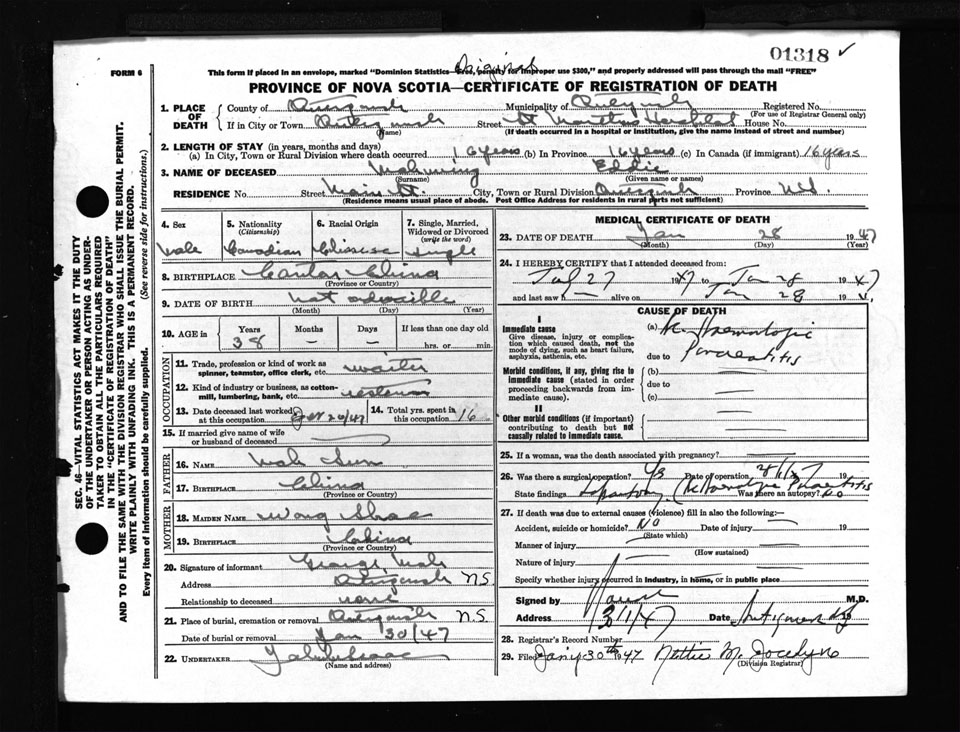 01318 ✓
Original
FORM 6
This form if placed in an envelope, marked "Dominion Statistics—Free, penalty for improper use $300," and properly addressed will pass through the mail "FREE"
PROVINCE OF NOVA SCOTIA—CERTIFICATE OF REGISTRATION OF DEATH
SEC. 46—VITAL STATISTICS ACT MAKES IT THE DUTY
OF THE UNDERTAKER OR PERSON ACTING AS UNDER-
TAKER TO OBTAIN ALL THE PARTICULARS REQUIRED
IN THE "CERTIFICATE OF REGISTRATION OF DEATH"
AND TO FILE THE SAME WITH THE DIVISION REGISTRAR WHO SHALL ISSUE THE BURIAL PERMIT.
WRITE PLAINLY WITH UNFADING INK. THIS IS A PERMANENT RECORD.
Every item of information should be carefully supplied. (See reverse side for instructions.)
1. PLACE OF DEATH
County of Antigonish Municipality of Antigonish Registered No.
(For use of Registrar General only)
If in City or Town Antigonish Street St Marthas Hospital House No.
(Name) (If death occurred in a hospital or institution, give the name instead of street and number)
2. LENGTH OF STAY (in years, months and days)
(a) In City, Town or Rural Division where death occurred 16 years (b) In Province 16 years (c) In Canada (if immigrant) 16 years
3. NAME OF DECEASED Eddie
(Surname) (Given name or names)
RESIDENCE No. Street Main St. City, Town or Rural Division Antigonish Province N.S.
(Residence means usual place of abode. Post Office Address for residents in rural parts not sufficient)
4. Sex
Male
5. Nationality
(Citizenship)
Canadian
6. Racial Origin
Chinese
7. Single, Married,
Widowed or Divorced
(write the word)
Single
8. BIRTHPLACE Canton China
(Province or Country)
9. DATE OF BIRTH not
(Month) (Day) (Year)
10. AGE in
Years Months Days If less than one day old
38 — — hrs. or min.
OCCUPATION
11. Trade, profession or kind of work as
spinner, teamster, office clerk, etc. waiter
12. Kind of industry or business, as cotton-
mill, lumbering, bank, etc.
13. Date deceased last worked
at this occupation 20/47
14. Total yrs. spent in
this occupation 16
15. If married give name of wife
or husband of deceased
FATHER
16. NAME Wah
17. BIRTHPLACE China
(Province or Country)
MOTHER
18. MAIDEN NAME Wong
19. BIRTHPLACE China
(Province or Country)
20. Signature of informant George Wah
Address Antigonish N.S.
Relationship to deceased none
21. Place of burial, cremation or removal Antigonish N.S.
Date of burial or removal Jan 30/47
22. UNDERTAKER
(Name and address)
MEDICAL CERTIFICATE OF DEATH
23. DATE OF DEATH Jan 28 1947
(Month) (Day) (Year)
24. I HEREBY CERTIFY that I attended deceased from:
27 1947 to Jan 28 1947
and last saw h alive on Jan 28 19
CAUSE OF DEATH
I
Immediate cause
Give disease, injury or complica-
tion which caused death, not the
mode of dying, such as heart failure,
asphyxia, asthenia, etc.
(a)
due to Pancreatitis
Morbid conditions, if any, giving rise to
immediate cause (stated in order
proceeding backwards from im-
mediate cause).
(b)
due to
(c)
II
Other morbid conditions (if important)
contributing to death but not
causally related to immediate cause.
25. If a woman, was the death associated with pregnancy?
26. Was there a surgical operation? Date of operation 19
State findings Pancreatitis Was there an autopsy? No
27. If death was due to external causes (violence) fill in also the following:—
Accident, suicide or homicide? No Date of injury 19
(State which)
Manner of injury
(How sustained)
Nature of injury
Specify whether injury occurred in industry, in home, or in public place
Signed by M.D.
Address 30/1/47 Date Antigonish
28. Registrar's Record Number
29. Filed Jan'y 30th 1947 Nettie M. Jocelyn
(Division Registrar)